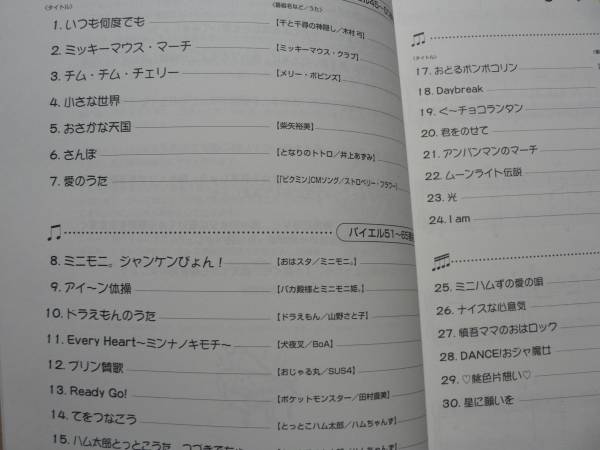 〈タイトル〉 〈番組名など／うた〉
1. いつも何度でも 【千と千尋の神隠し／木村 弓】
2. ミッキーマウス・マーチ 【ミッキーマウス・クラブ】
3. チム・チム・チェリー 【メリー・ポピンズ】
4. 小さな世界
5. おさかな天国 【柴矢裕美】
6. さんぽ 【となりのトトロ／井上あずみ】
7. 愛のうた 【「ピクミン」CMソング／ストロベリー・フラワー】
バイエル51〜65
8. ミニモニ。ジャンケンぴょん！ 【おはスタ／ミニモニ。】
9. アイ〜ン体操 【バカ殿様とミニモニ姫。】
10. ドラえもんのうた 【ドラえもん／山野さと子】
11. Every Heart〜ミンナノキモチ〜 【犬夜叉／BoA】
12. プリン賛歌 【おじゃる丸／SUS4】
13. Ready Go! 【ポケットモンスター／田村直美】
14. てをつなごう 【とっとこハム太郎／ハムちゃんず】
15. ハム太郎とっとこうた
〈タイトル〉
17. おどるポンポコリン
18. Daybreak
19. ぐ〜チョコランタン
20. 君をのせて
21. アンパンマンのマーチ
22. ムーンライト伝説
23. 光
24. I am
25. ミニハムずの愛の唄
26. ナイスな心意気
27. 慎吾ママのおはロック
28. DANCE!おジャ魔女
29. ♡桃色片想い♡
30. 星に願いを